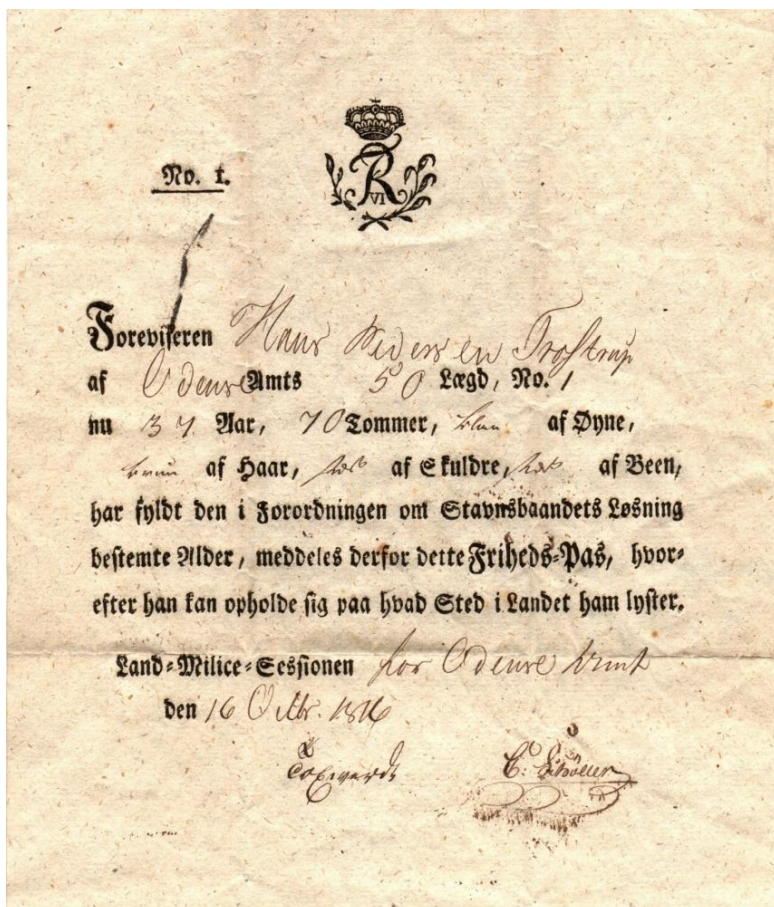 FR VI
No. 1.
Foreviseren Hans Pedersen Trostrup
af Odense Amts 50 Lægd, No. 1
nu 37 Aar, 70 Tommer, blaa af Øyne,
bruun af Haar, af Skuldre, af Been,
har fyldt den i Forordningen om Stavnsbaandets Løsning
bestemte Alder, meddeles derfor dette Friheds-Pas, hvor-
efter han kan opholde sig paa hvad Sted i Landet ham lyster.
Land-Milice-Sessionen for Odense Amt
den 16 Octbr. 1816